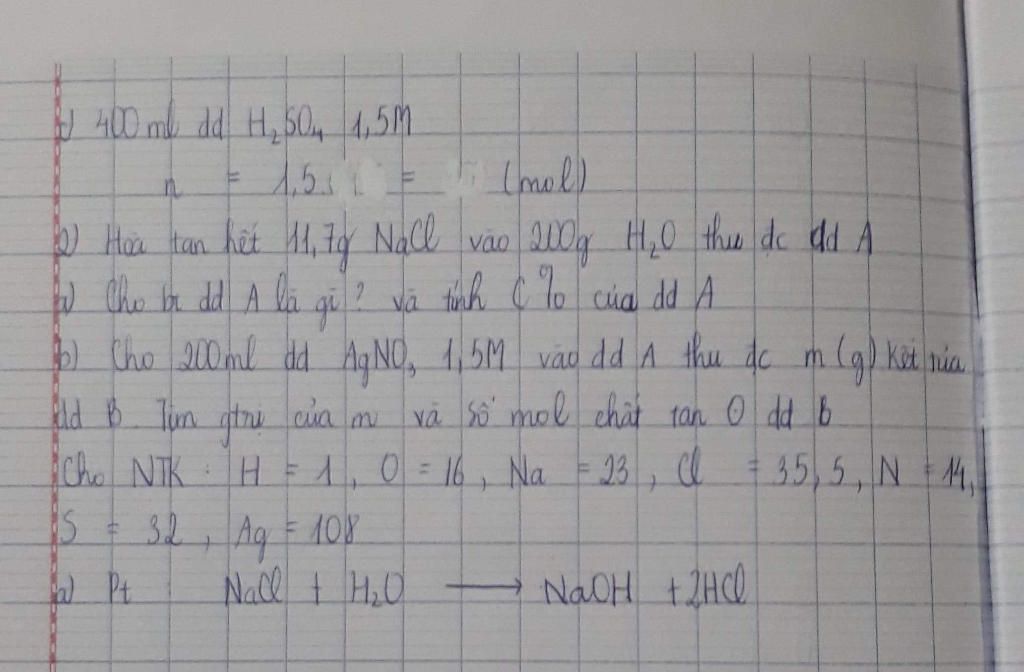 c) 400ml dd H₂SO₄ 1,5M
n = 1,5. = (mol)
2) Hòa tan hết 11,7g NaCl vào 200g H₂O thu đc dd A
a) Cho bt dd A là gì? và tính C% của dd A
b) Cho 200ml dd AgNO₃ 1,5M vào dd A thu đc m (g) kết
dd B. Tìm gtrị của m và số mol chất tan dd B
Cho NTK: H = 1, O = 16, Na = 23, Cl = 35,5, N = 14,
S = 32, Ag = 108
a) Pt NaCl + H₂O → NaOH + 2HCl